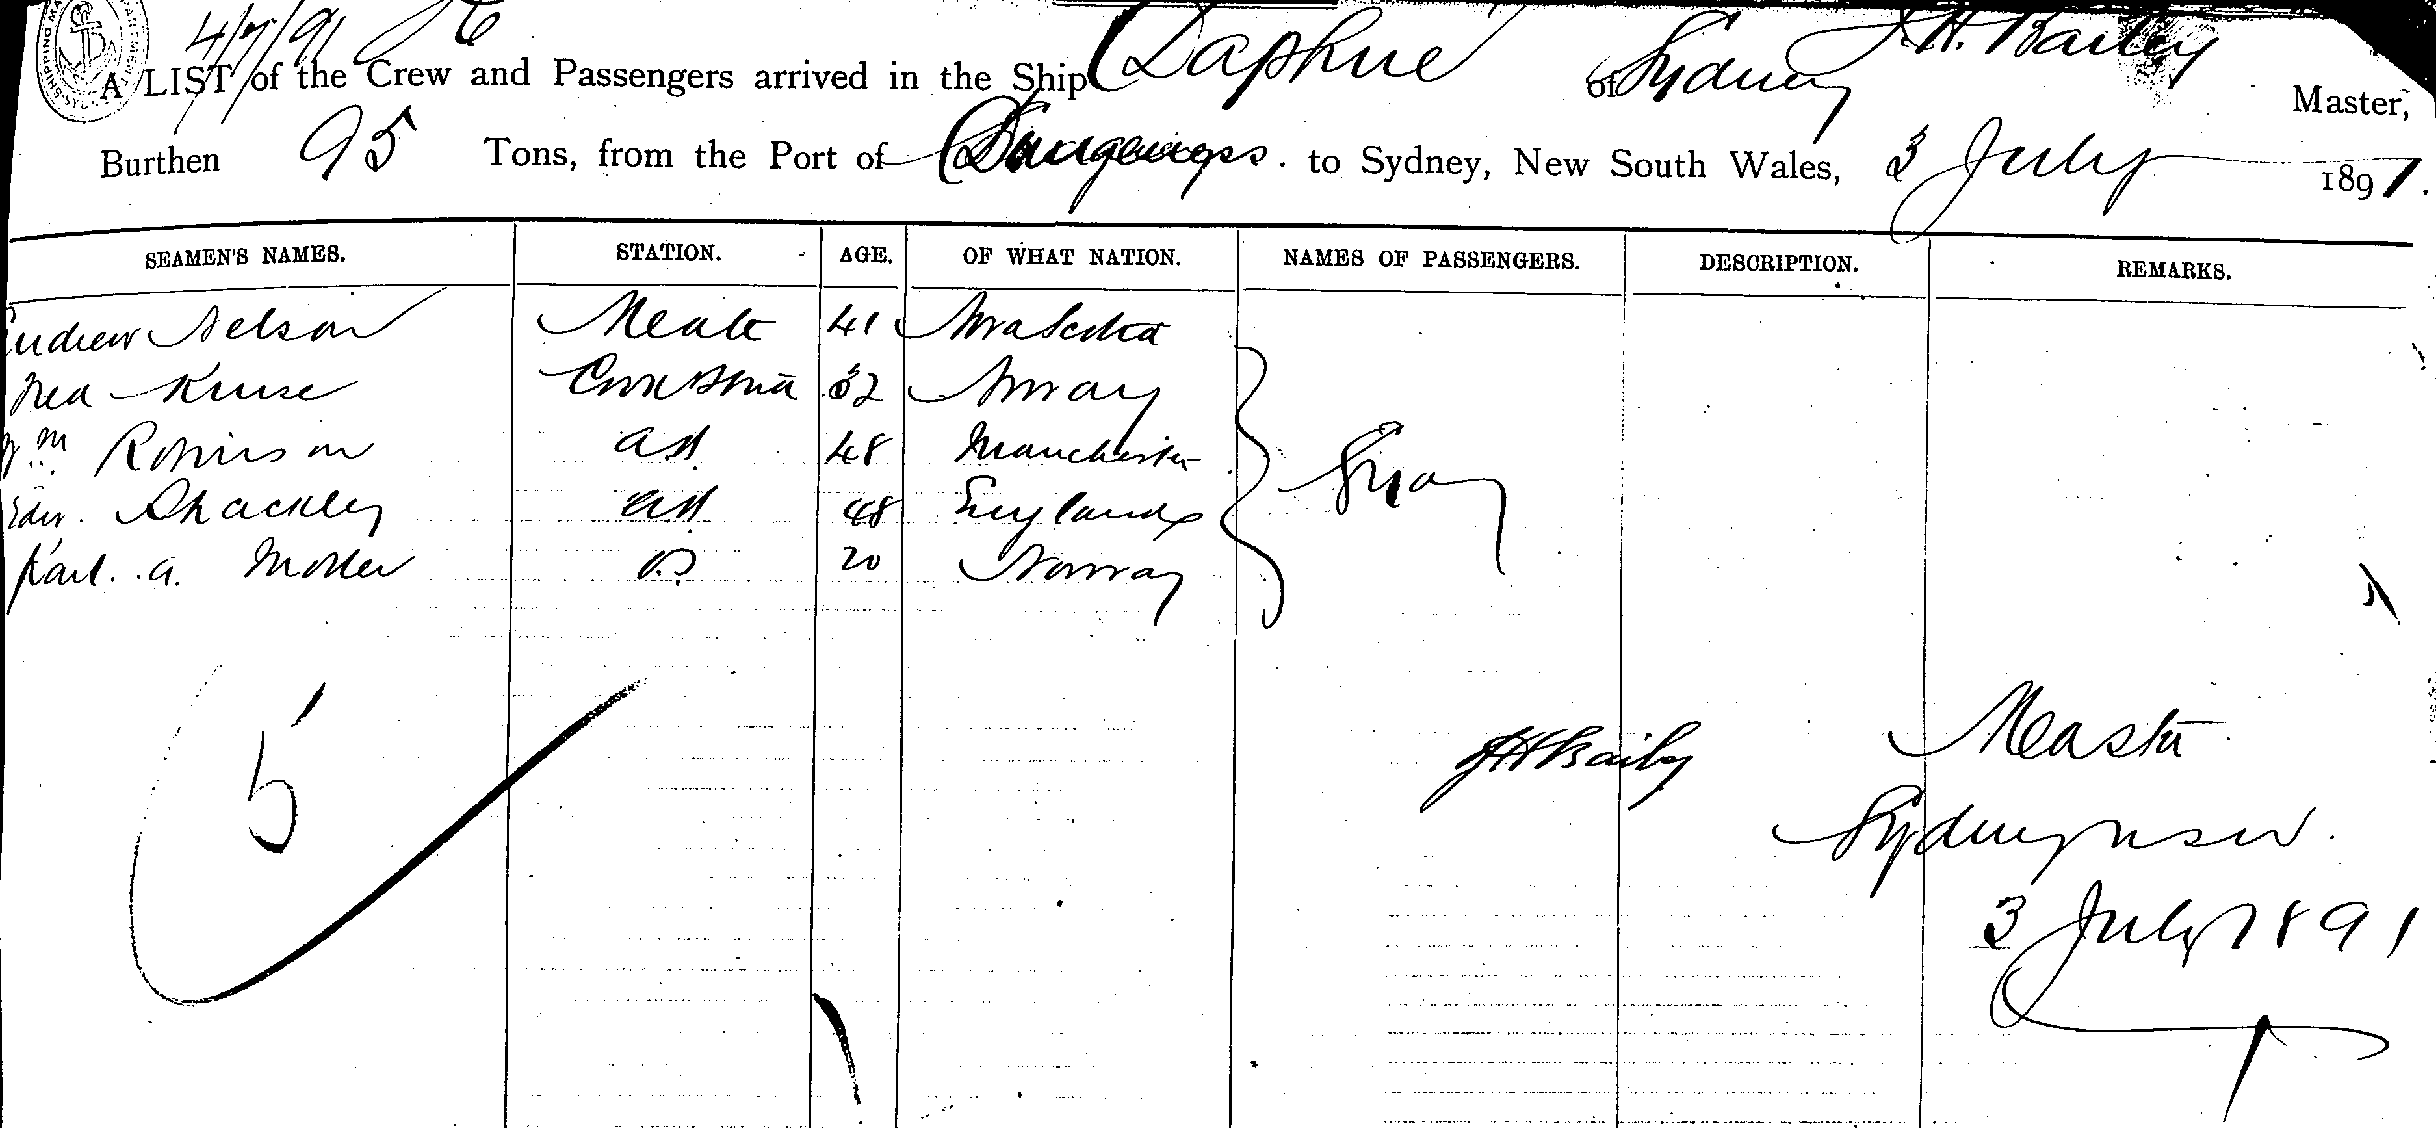 4/7/91
A LIST of the Crew and Passengers arrived in the Ship Daphne of Sydney J. H. Bailey Master,
Burthen 95 Tons, from the Port of to Sydney, New South Wales, 3 July 1891.
SEAMEN'S NAMES. STATION. AGE. OF WHAT NATION. NAMES OF PASSENGERS. DESCRIPTION. REMARKS.
Andrew Nelson Mate 41 Nova Scotia
Fred Kruse Cook & Std 32 Norway
Wm Robinson AS 48 Manchester
Edw. Shackley AS 48 England
Karl. A. Moller 20 Norway
5
JH Baily Master
Sydney NSW.
3 July 1891